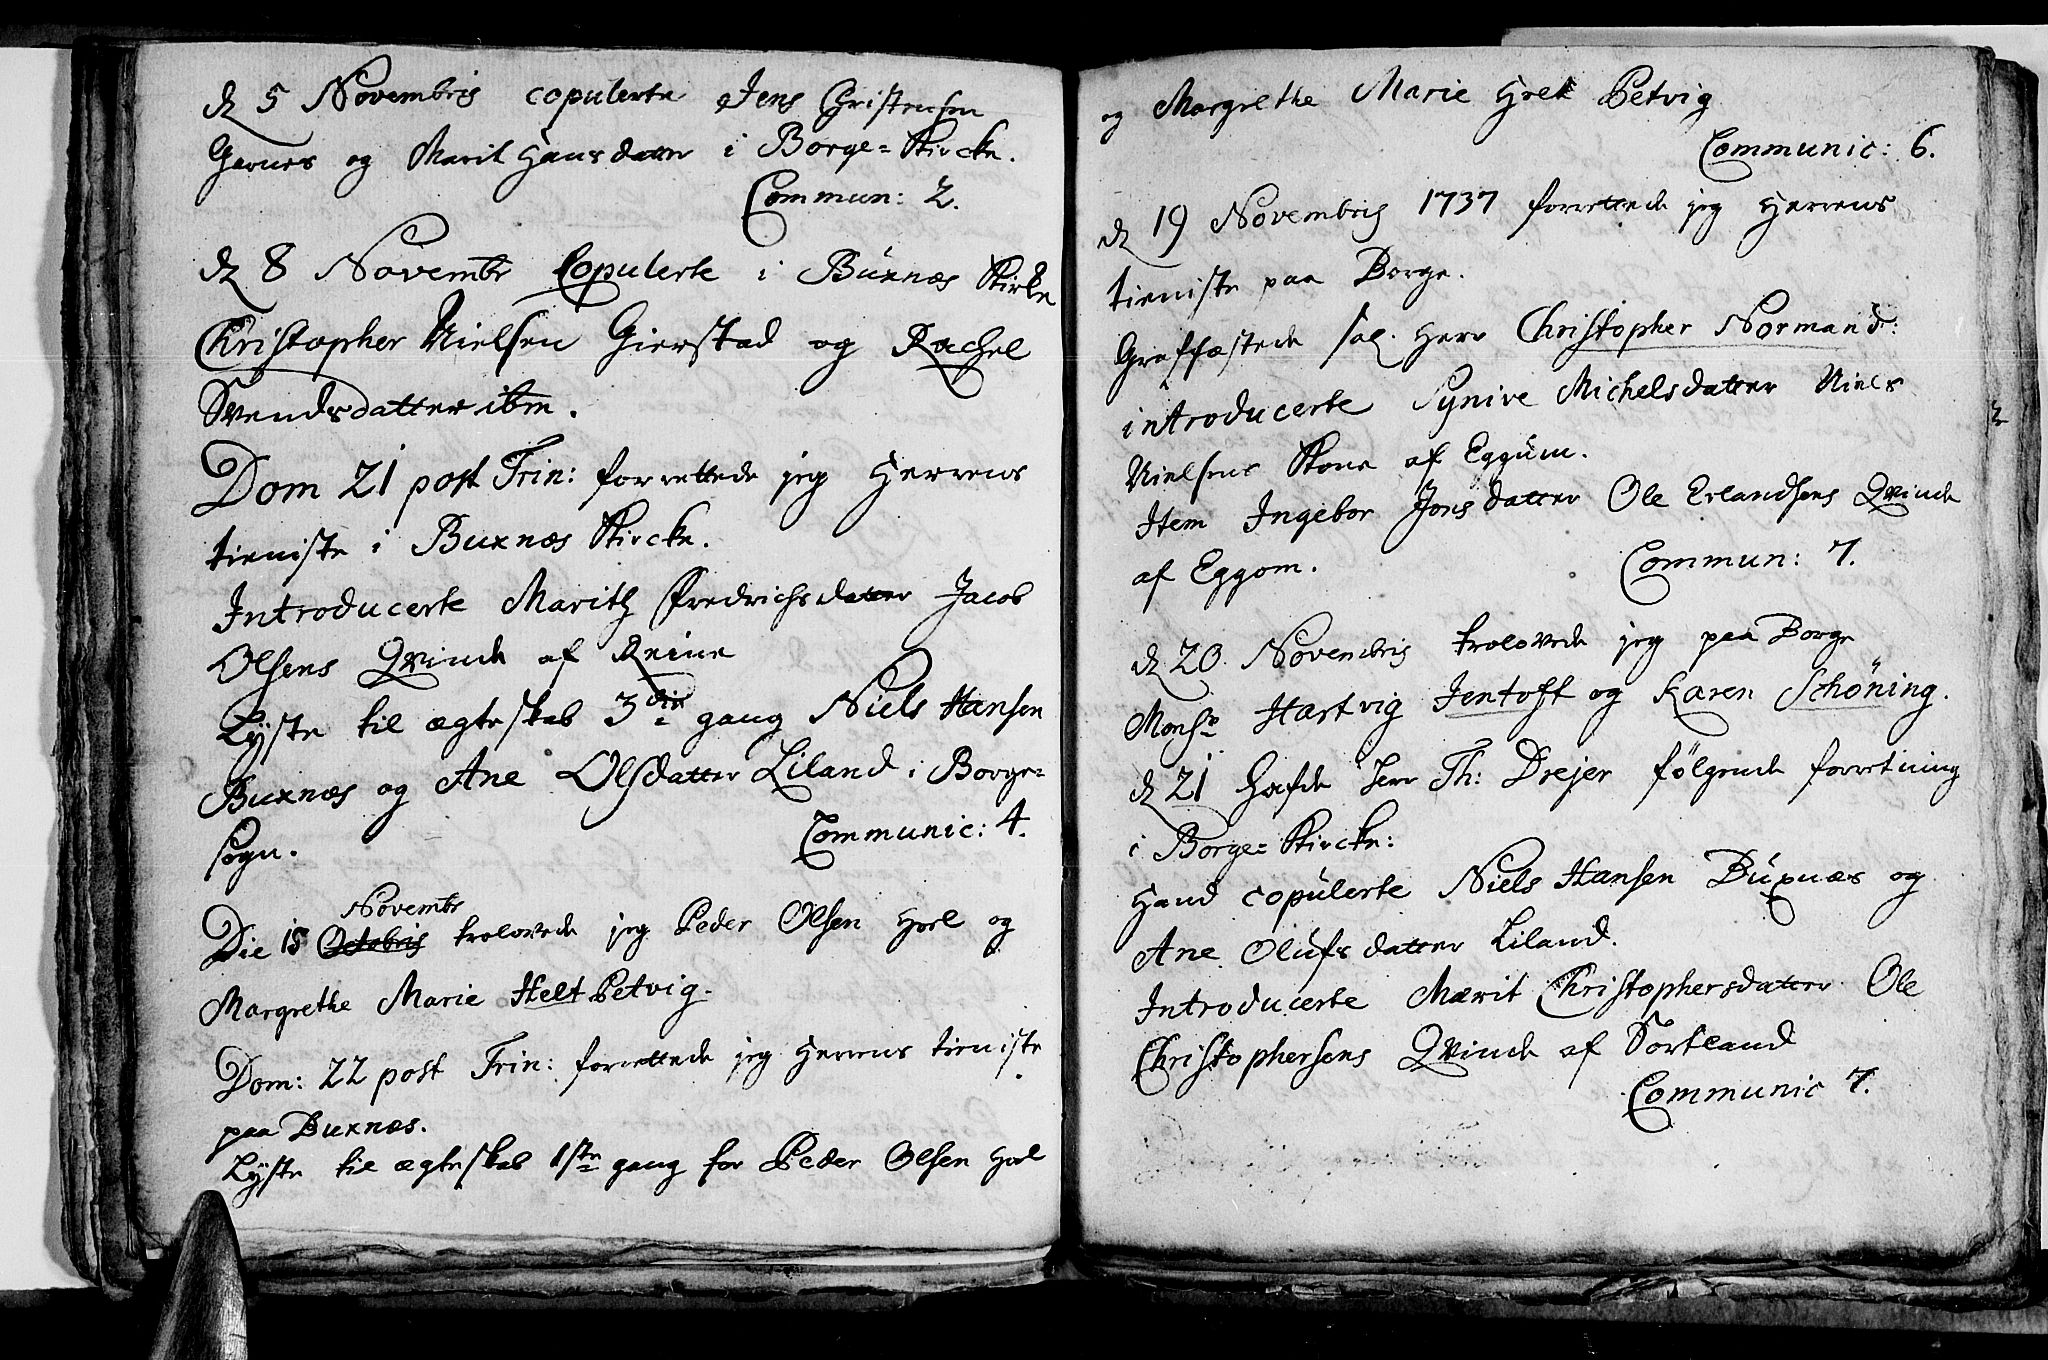 d 5 Novembris copulerte Jens Christensen
Garnes og Marit Hansdatter i Borge= Kircke.
Commun: 2.
d 8 Novembr Copulerte i Buxnæs Kirke
Christopher Nielsen Gierstad og Rachel
Svendsdatter ibm.
Dom 21 post Trin: forrettede jeg Herrens
tieniste i Buxnæs Kircke.
Introducerte Marith Fredrichsdatter Jacob
Olsens Qvinde af Reine
Lyste til ægteskab 3die gang Niels Hansen
Buxnæs og Ane Olsdatter Liland i Borge=
sogn.
Communic: 4.
Novembr
Die 15 Octobris trolovede jeg Peder Olsen Hoel og
Margrethe Marie Helt Petvig.
Dom: 22 post Trin: forrettede jeg Herrens tieniste
paa Buxnæs.
Lyste til ægteskab 1ste gang for Peder Olsen Hoel
og Margrethe Marie Helt Petvig
Communic: 6.
d 19 Novembris 1737 forrettede jeg Herrens
tieniste paa Borge.
Graffæstede sal. Herr Christopher Normand:
introducerte Synive Michelsdatter Niels
Nielsens Kone af Eggum.
Item Ingebor Jonsdatter Ole Erlandsens Qvinde
af Eggom.
Commun: 7.
d 20 Novembris trolovede jeg paa Borge
Monsr Hartvig Jentoft og Karen Schöning.
d 21 hafde Herr Th: Drejer følgende forretning
i Borge= Kircke:
Hand copulerte Niels Hansen Buxnæs og
Ane Olufsdatter Liland.
Introducerte Marit Christophersdatter Ole
Christophersens Qvinde af Sortland
Communic 7.